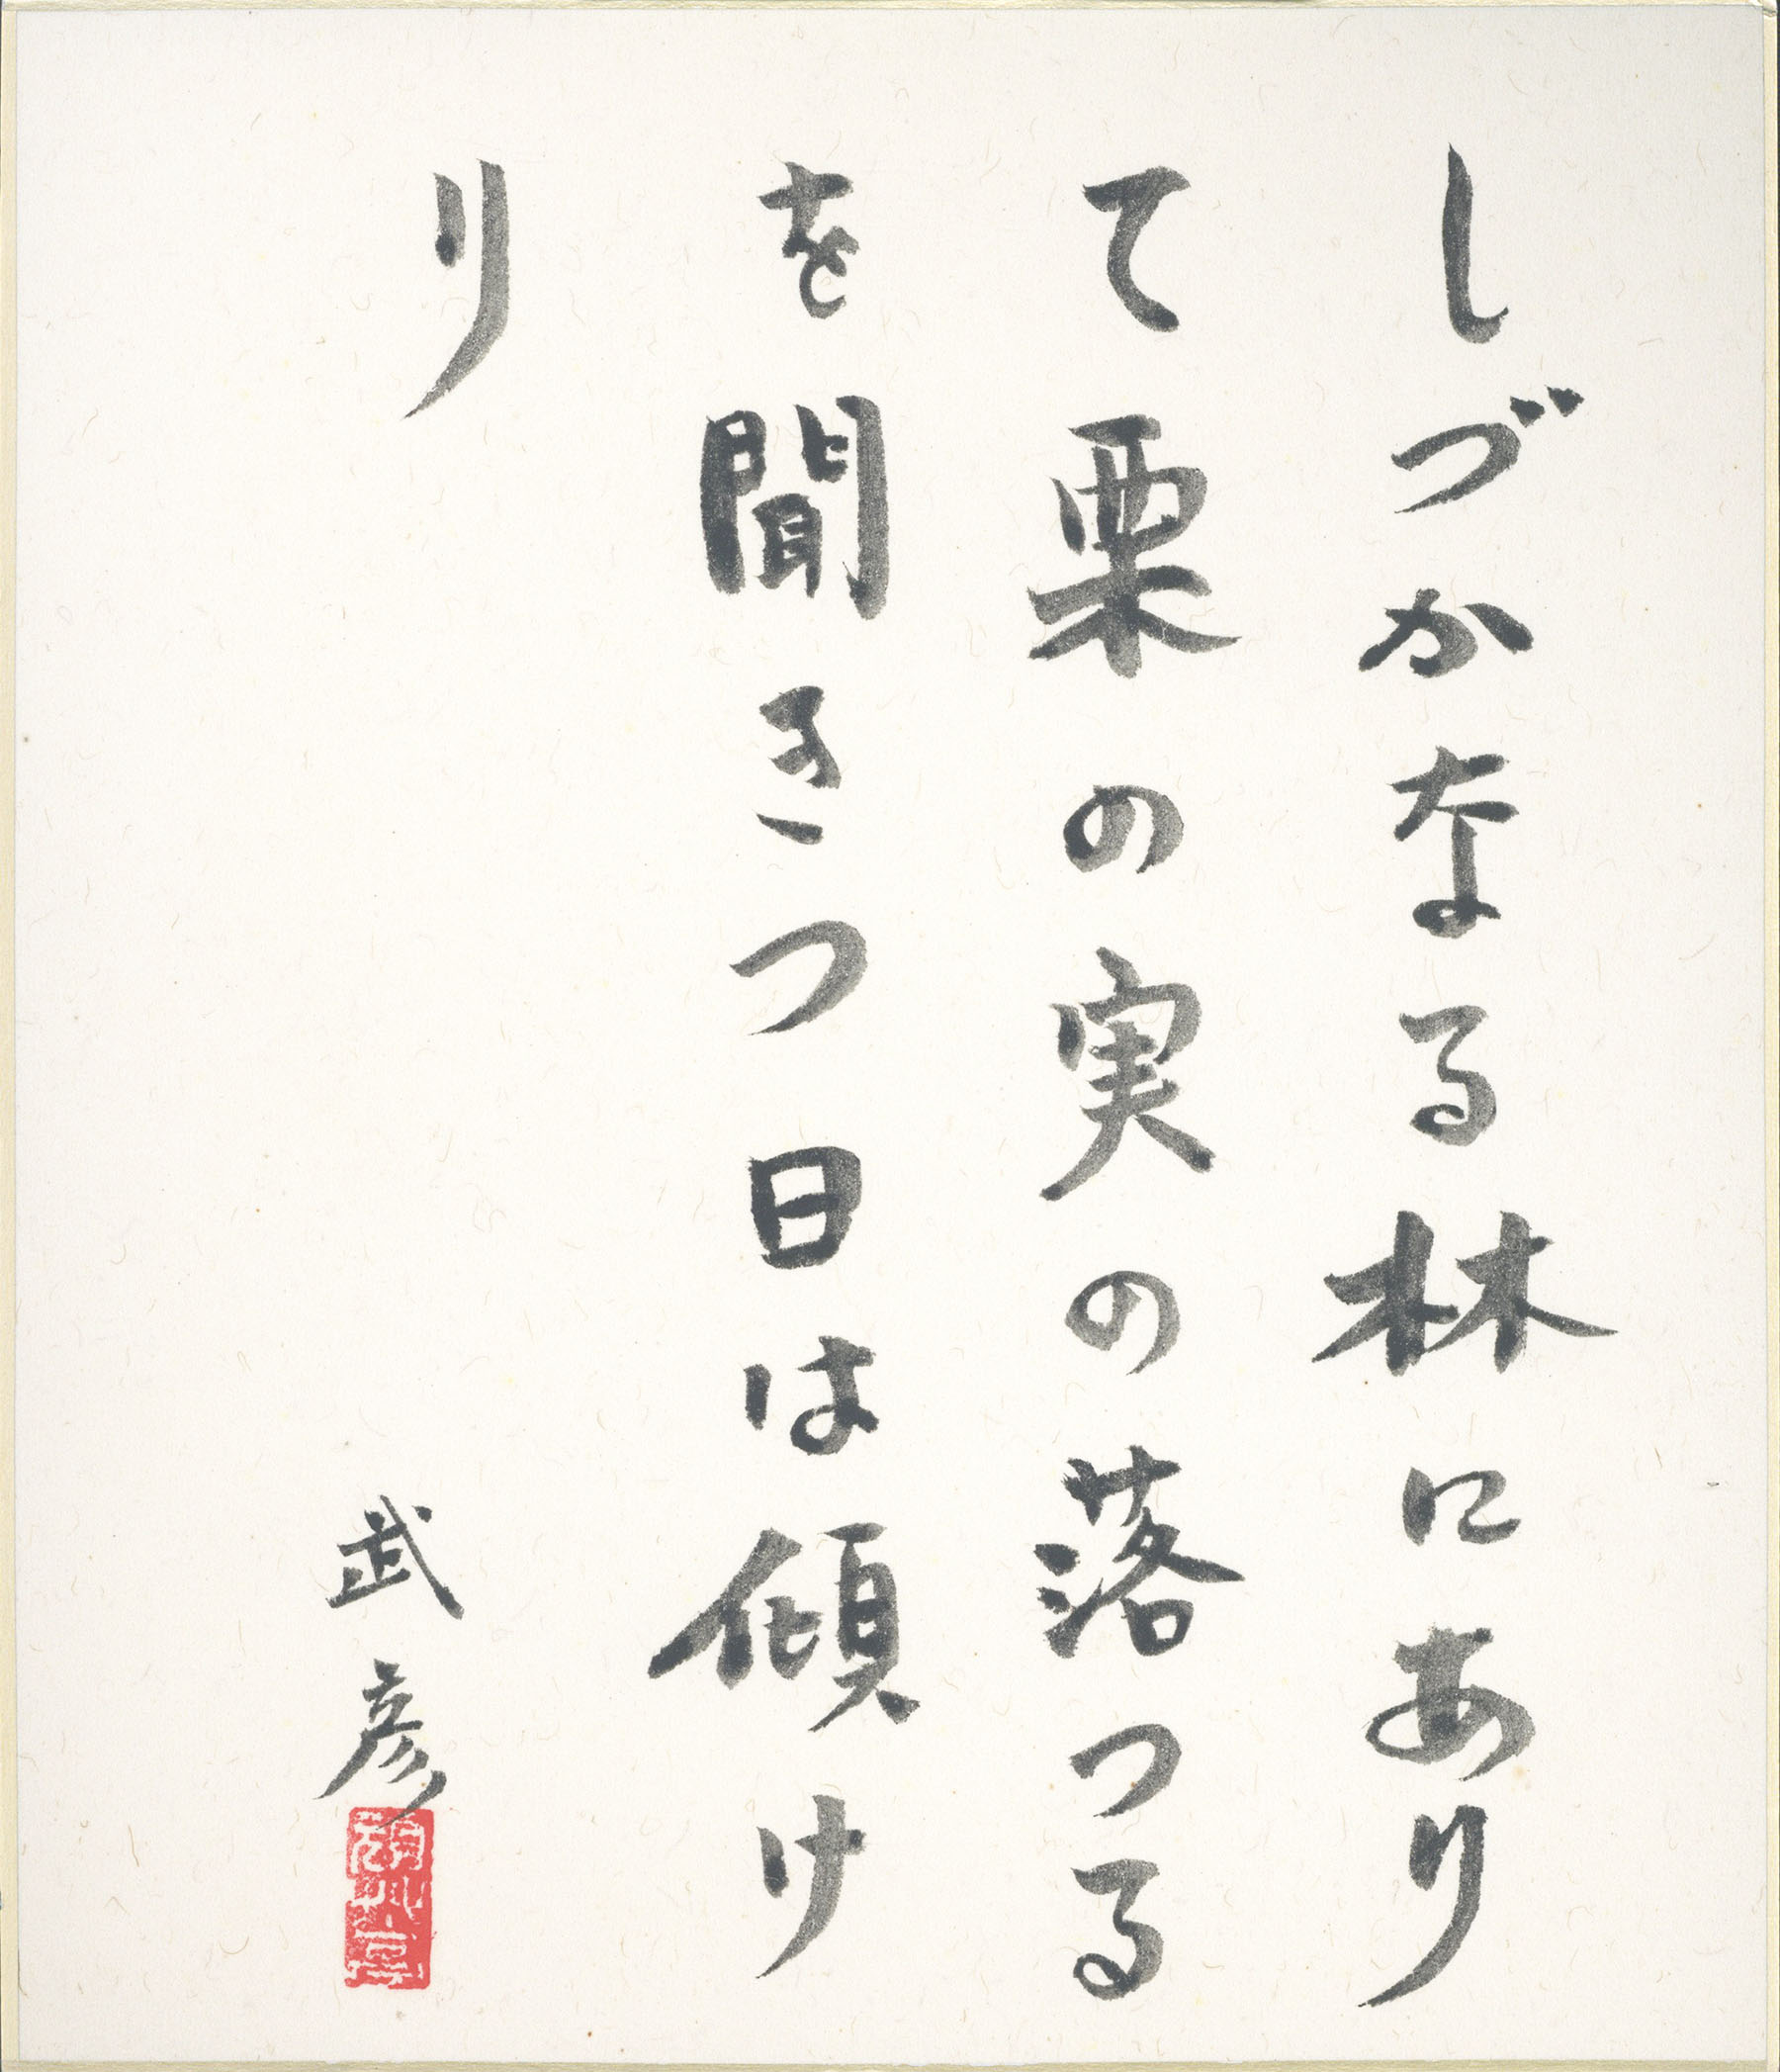 しづかなる林にあり
て栗の実の落つる
を聞きつ日は傾け
り
武彦